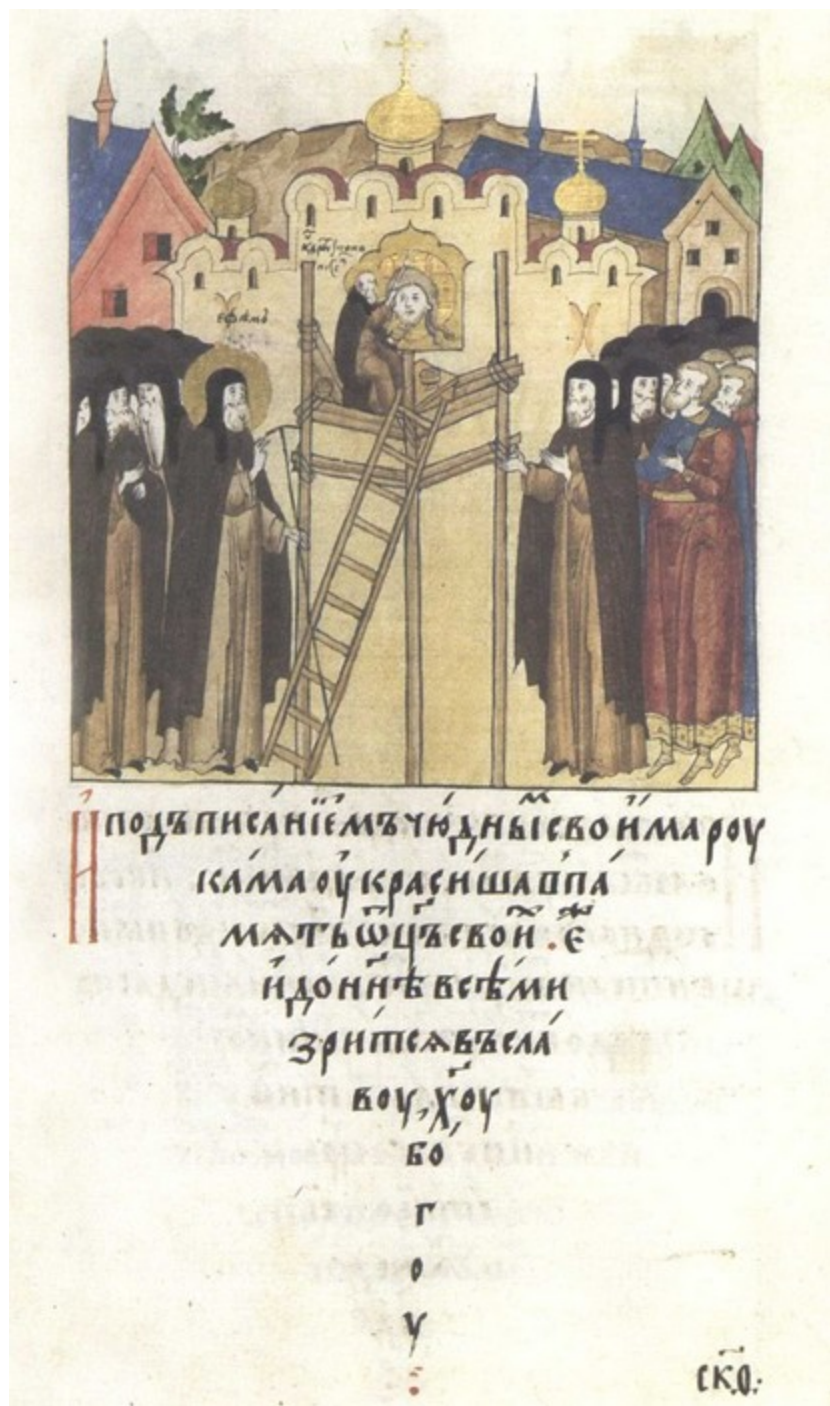 И подъписанїемъ чюдныⷨ своима роу
кама оукрасиша в па
мѧть ѡц҃ъ своиⷯ. еⷤ
и до н҃нѣ всѣми
зритсѧ въ сла
воу, х҃оу
бо
г
о
у
ск҃ѳ.